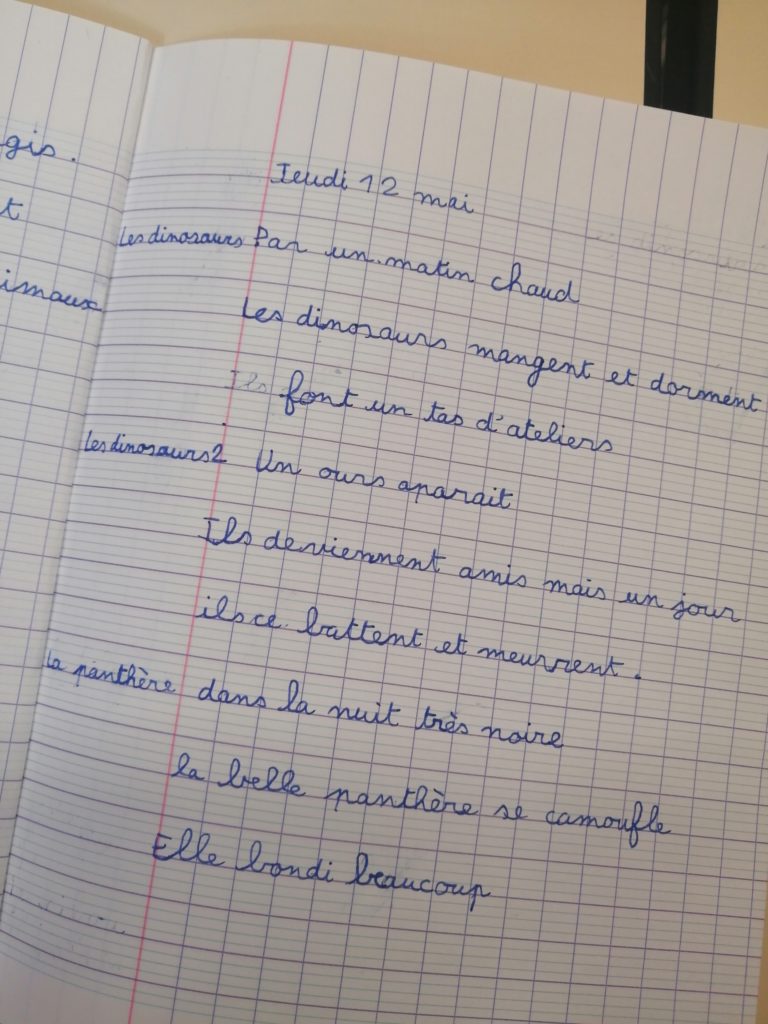 gis.
t
imaux
Jeudi 12 mai
Les dinosaurs Par un matin chaud
Les dinosaurs mangent et dorment
Ils font un tas d'ateliers
Les dinosaurs 2 Un ours aparait
Ils deviennent amis mais un jour
ils ce battent et meurrent.
la panthère dans la nuit très noire
la belle panthère se camoufle
Elle bondi beaucoup